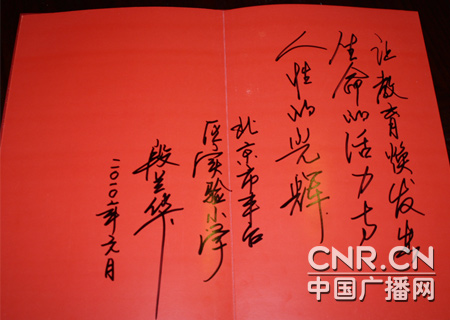 让教育焕发出
生命的活力与
人性的光辉
北京市丰台
区实验小学
段兰华
二〇一〇年元月
CNR.CN
中国广播网